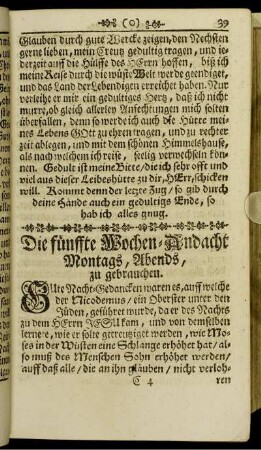 (o) 39
Glauben durch gute Wercke zeigen, den Nechsten
gerne lieben, mein Creutz gedultig tragen, und ie-
derzeit auff die Hülffe des HErrn hoffen, biß ich
meine Reise durch die wüste Welt werde geendiget,
und das Land der Lebendigen erreichet haben. Nur
verleihe er mir ein gedultiges Hertz, daß ich nicht
murre, ob gleich allerley Anfechtungen mich solten
überfallen, denn so werde ich auch die Hütte mei-
nes Lebens GOtt zu ehren tragen, und zu rechter
zeit ablegen, und mit dem schönen Himmelshause,
als nach welchem ich reise, seelig verwechseln kön-
nen. Gedult ist meine Bitte, die ich sehr offt und
viel aus dieser Leibeshütte zu dir, HErr, schicken
will. Kommt denn der letzte Zug, so gib durch
deine Hände auch ein gedultiges Ende, so
hab ich alles gnug.
Die fünffte Wochen-Andacht
Montags, Abends,
zu gebrauchen.
GUte Nacht-Gedancken waren es, auff welche
der Nicodemus, ein Oberster unter den
Jüden, geführet wurde, da er des Nachts
zu dem HErrn JESU kam, und von demselben
lernete, wie er solte gecreutziget werden, wie Mo-
ses in der Wüsten eine Schlange erhöhet hat, al-
so muß des Menschen Sohn erhöhet werden,
auff daß alle, die an ihn gläuben, nicht verloh-
C 4 ren